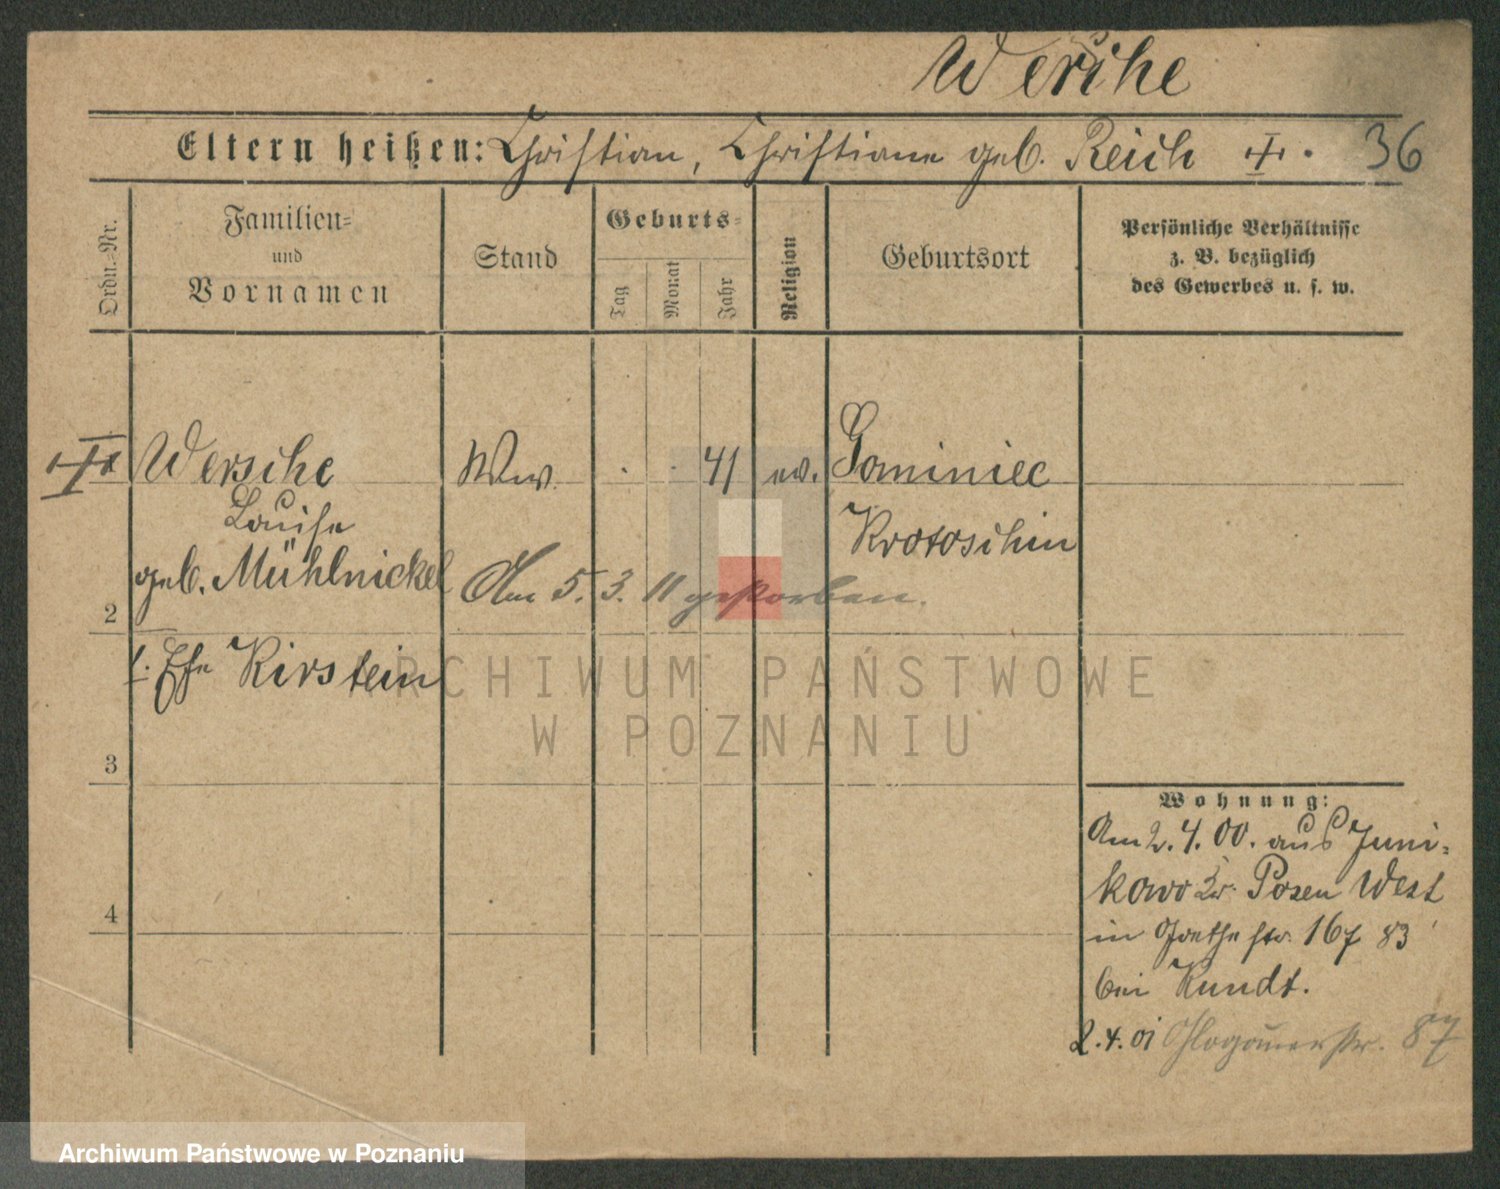 Wersche
Eltern heißen: Christian, Christiane geb. Reich 36
Ordn.-Nr.
Familien-
und
Vornamen
Stand
Geburts-
Tag
Monat
Jahr
Religion
Geburtsort
Persönliche Verhältnisse
z. B. bezüglich
des Gewerbes u. s. w.
Wersche Ww. . . 41 ev.
Louise
Krotoschin
geb. Mühlnickel
Am 5. 3. 11 gestorben.
2
Kirstein
3
4
Wohnung:
Am 2. 4. 00. aus Juni-
kowo Kr. Posen West
in Goethestr. 167 83
bei Kundt.
2.4.01 Glogauerstr. 87
ARCHIWUM PAŃSTWOWE
W POZNANIU
Archiwum Państwowe w Poznaniu